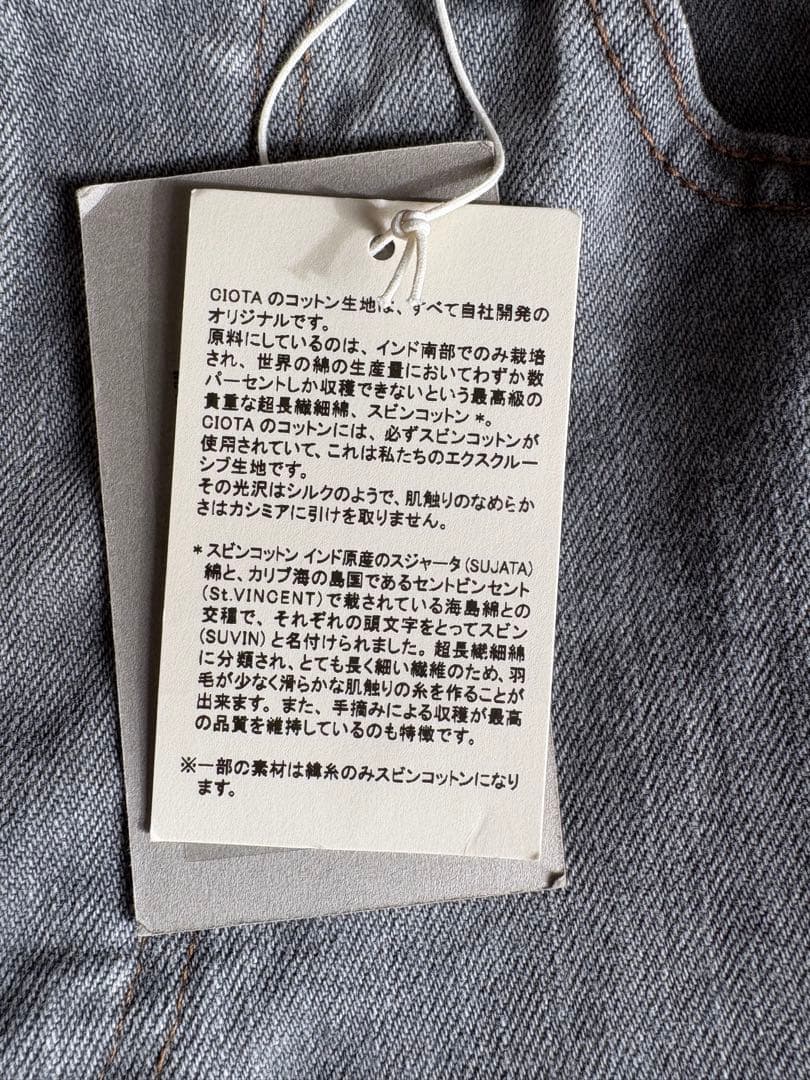 CIOTA のコットン生地は、すべて自社開発の
オリジナルです。
原料にしているのは、インド南部でのみ栽培
され、世界の綿の生産量においてわずか数
パーセントしか収穫できないという最高級の
貴重な超長繊細綿、スビンコットン*。
CIOTA のコットンには、必ずスビンコットンが
使用されていて、これは私たちのエクスクルー
シブ生地です。
その光沢はシルクのようで、肌触りのなめらか
さはカシミアに引けを取りません。
*スビンコットン インド原産のスジャータ(SUJATA)
綿と、カリブ海の島国であるセントビンセント
(St.VINCENT)で栽されている海島綿との
交種で、それぞれの頭文字をとってスビン
(SUVIN)と名付けられました。超長繊細綿
に分類され、とても長く細い繊維のため、羽
毛が少なく滑らかな肌触りの糸を作ることが
出来ます。また、手摘みによる収穫が最高
の品質を維持しているのも特徴です。
※一部の素材は緯糸のみスビンコットンになり
ます。